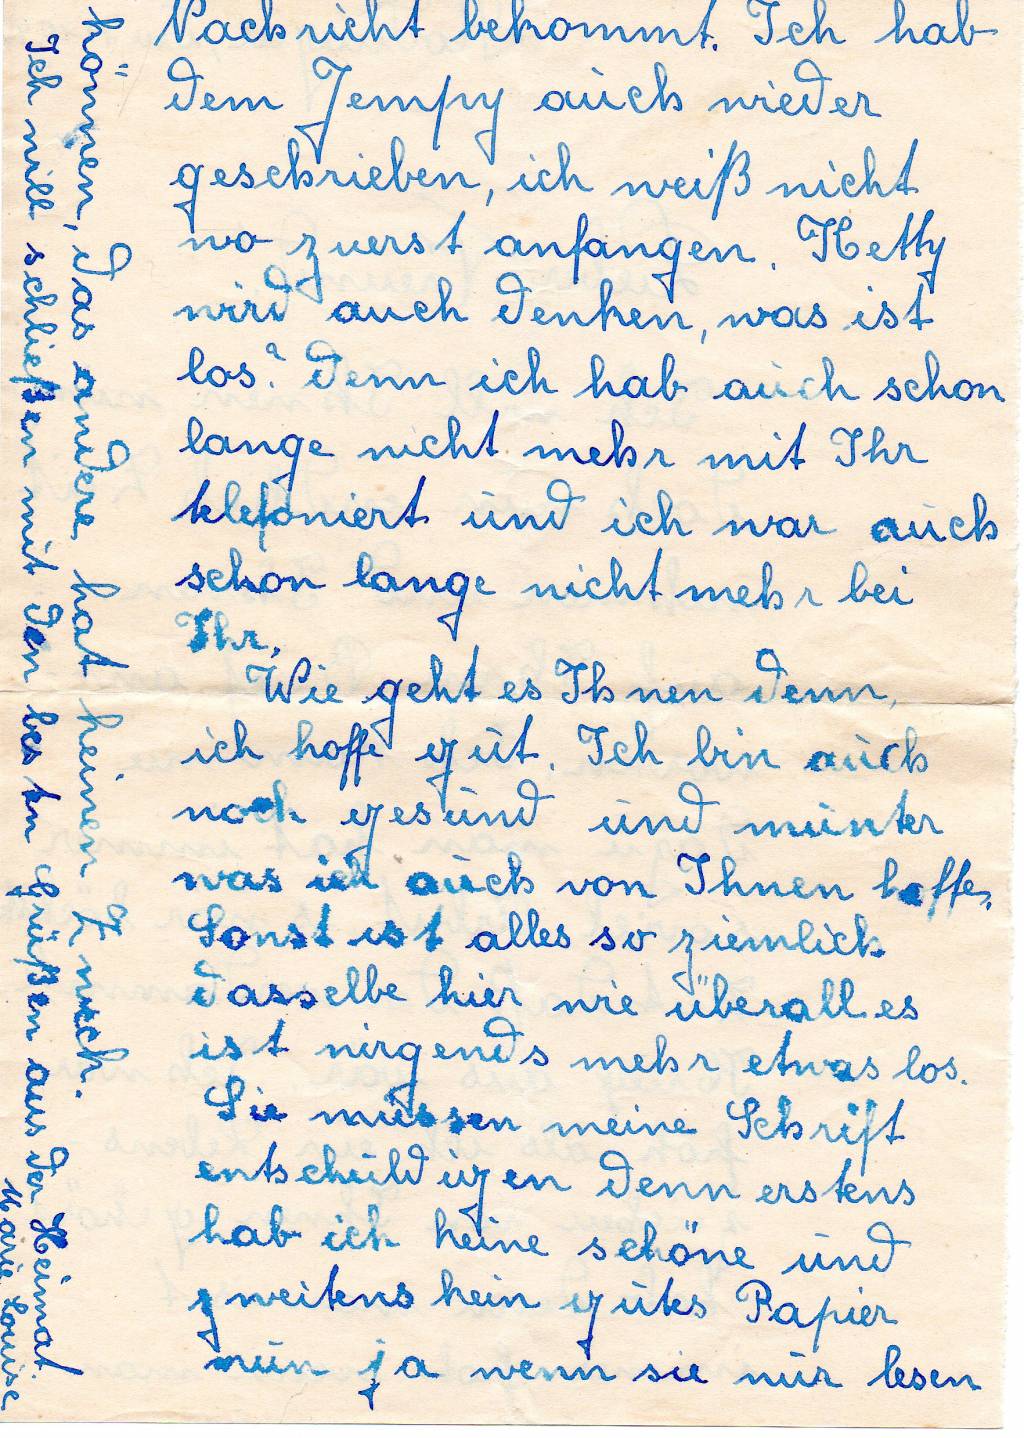 Nachricht bekommt. Ich hab
dem Jempy auch wieder
geschrieben, ich weiß nicht
wo zuerst anfangen. Ketty
wird auch denken, was ist
los? denn ich hab auch schon
lange nicht mehr mit Ihr
telefoniert und ich war auch
schon lange nicht mehr bei
Ihr.
Wie geht es Ihnen denn,
ich hoffe gut. Ich bin auch
noch gesund und munter
was ich auch von Ihnen hoffe.
Sonst ist alles so ziemlich
dasselbe hier wie überall es
ist nirgends mehr etwas los.
Sie müssen meine Schrift
entschuldigen denn erstens
hab ich keine schöne und
zweitens kein gutes Papier
nun ja wenn sie nur lesen
können, das andere hat keinen Zweck.
Ich will schließen mit den besten Grüßen aus der Heimat.
Marie Louise